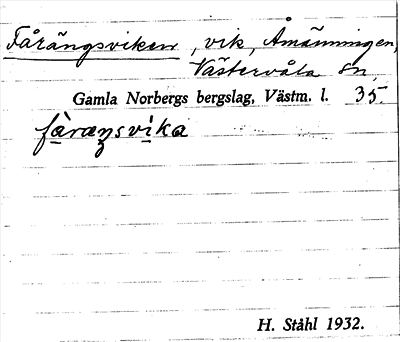 Fårängsviken, vik, Åmänningen,
Västervåla sn,
Gamla Norbergs bergslag, Västm. l. 35.
fàræŋsvika
H. Ståhl 1932.